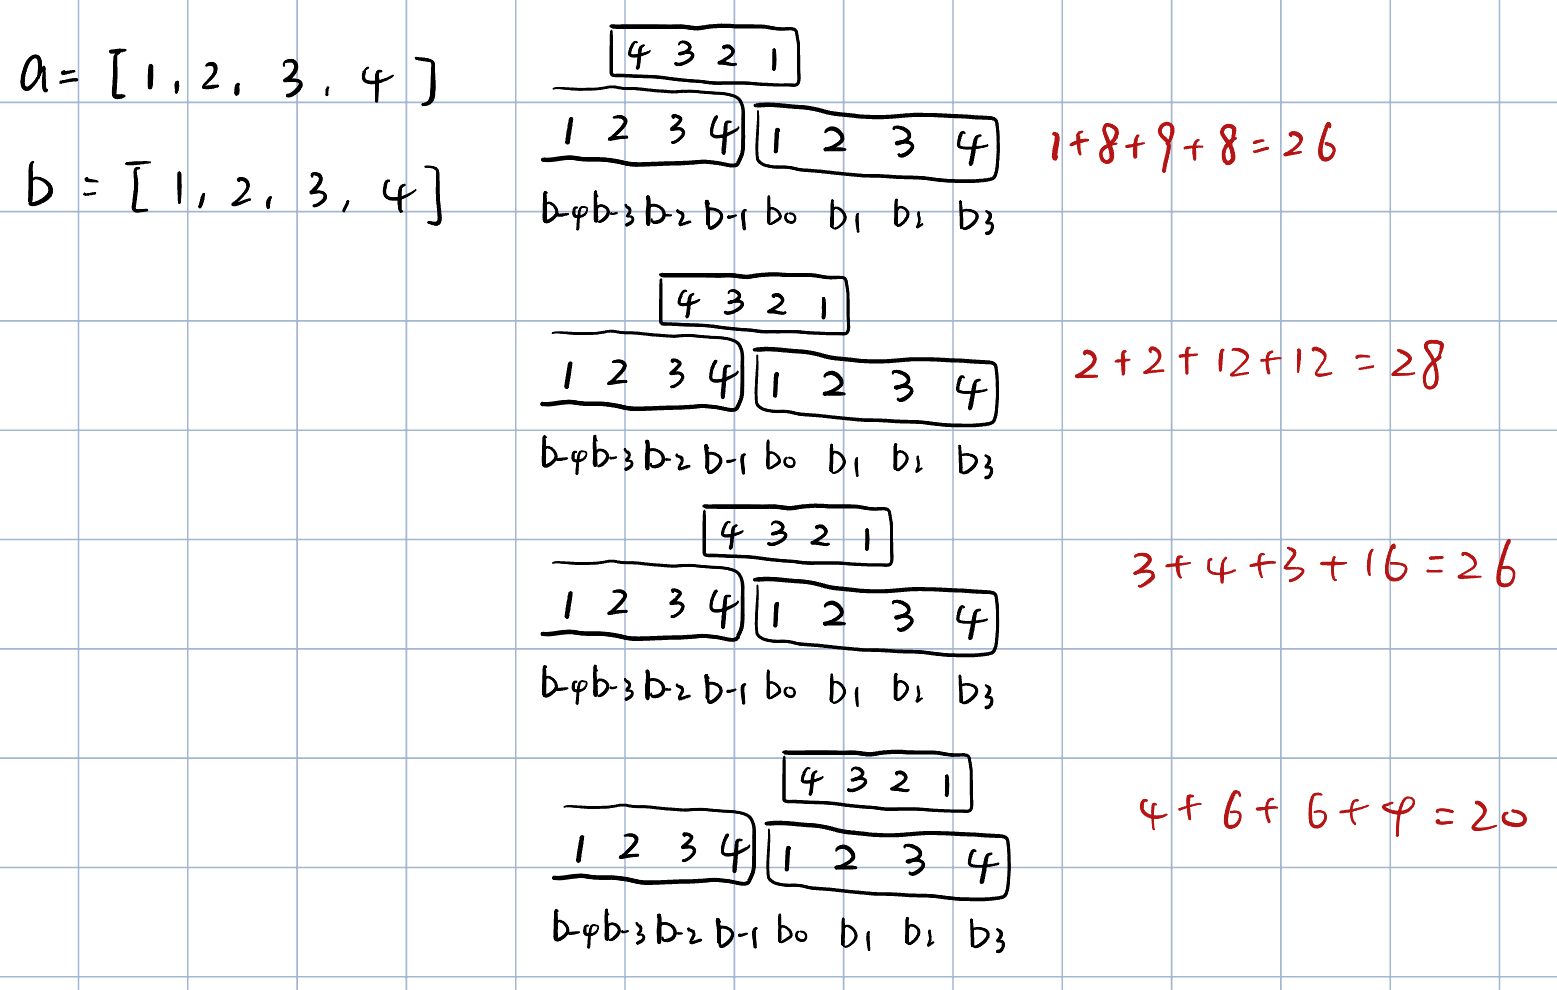 a = [1, 2, 3, 4]
b = [1, 2, 3, 4]
4 3 2 1
1 2 3 4 1 2 3 4
b-4 b-3 b-2 b-1 b0 b1 b2 b3
1+8+9+8=26
4 3 2 1
1 2 3 4 1 2 3 4
b-4 b-3 b-2 b-1 b0 b1 b2 b3
2+2+12+12=28
4 3 2 1
1 2 3 4 1 2 3 4
b-4 b-3 b-2 b-1 b0 b1 b2 b3
3+4+3+16=26
4 3 2 1
1 2 3 4 1 2 3 4
b-4 b-3 b-2 b-1 b0 b1 b2 b3
4+6+6+4=20